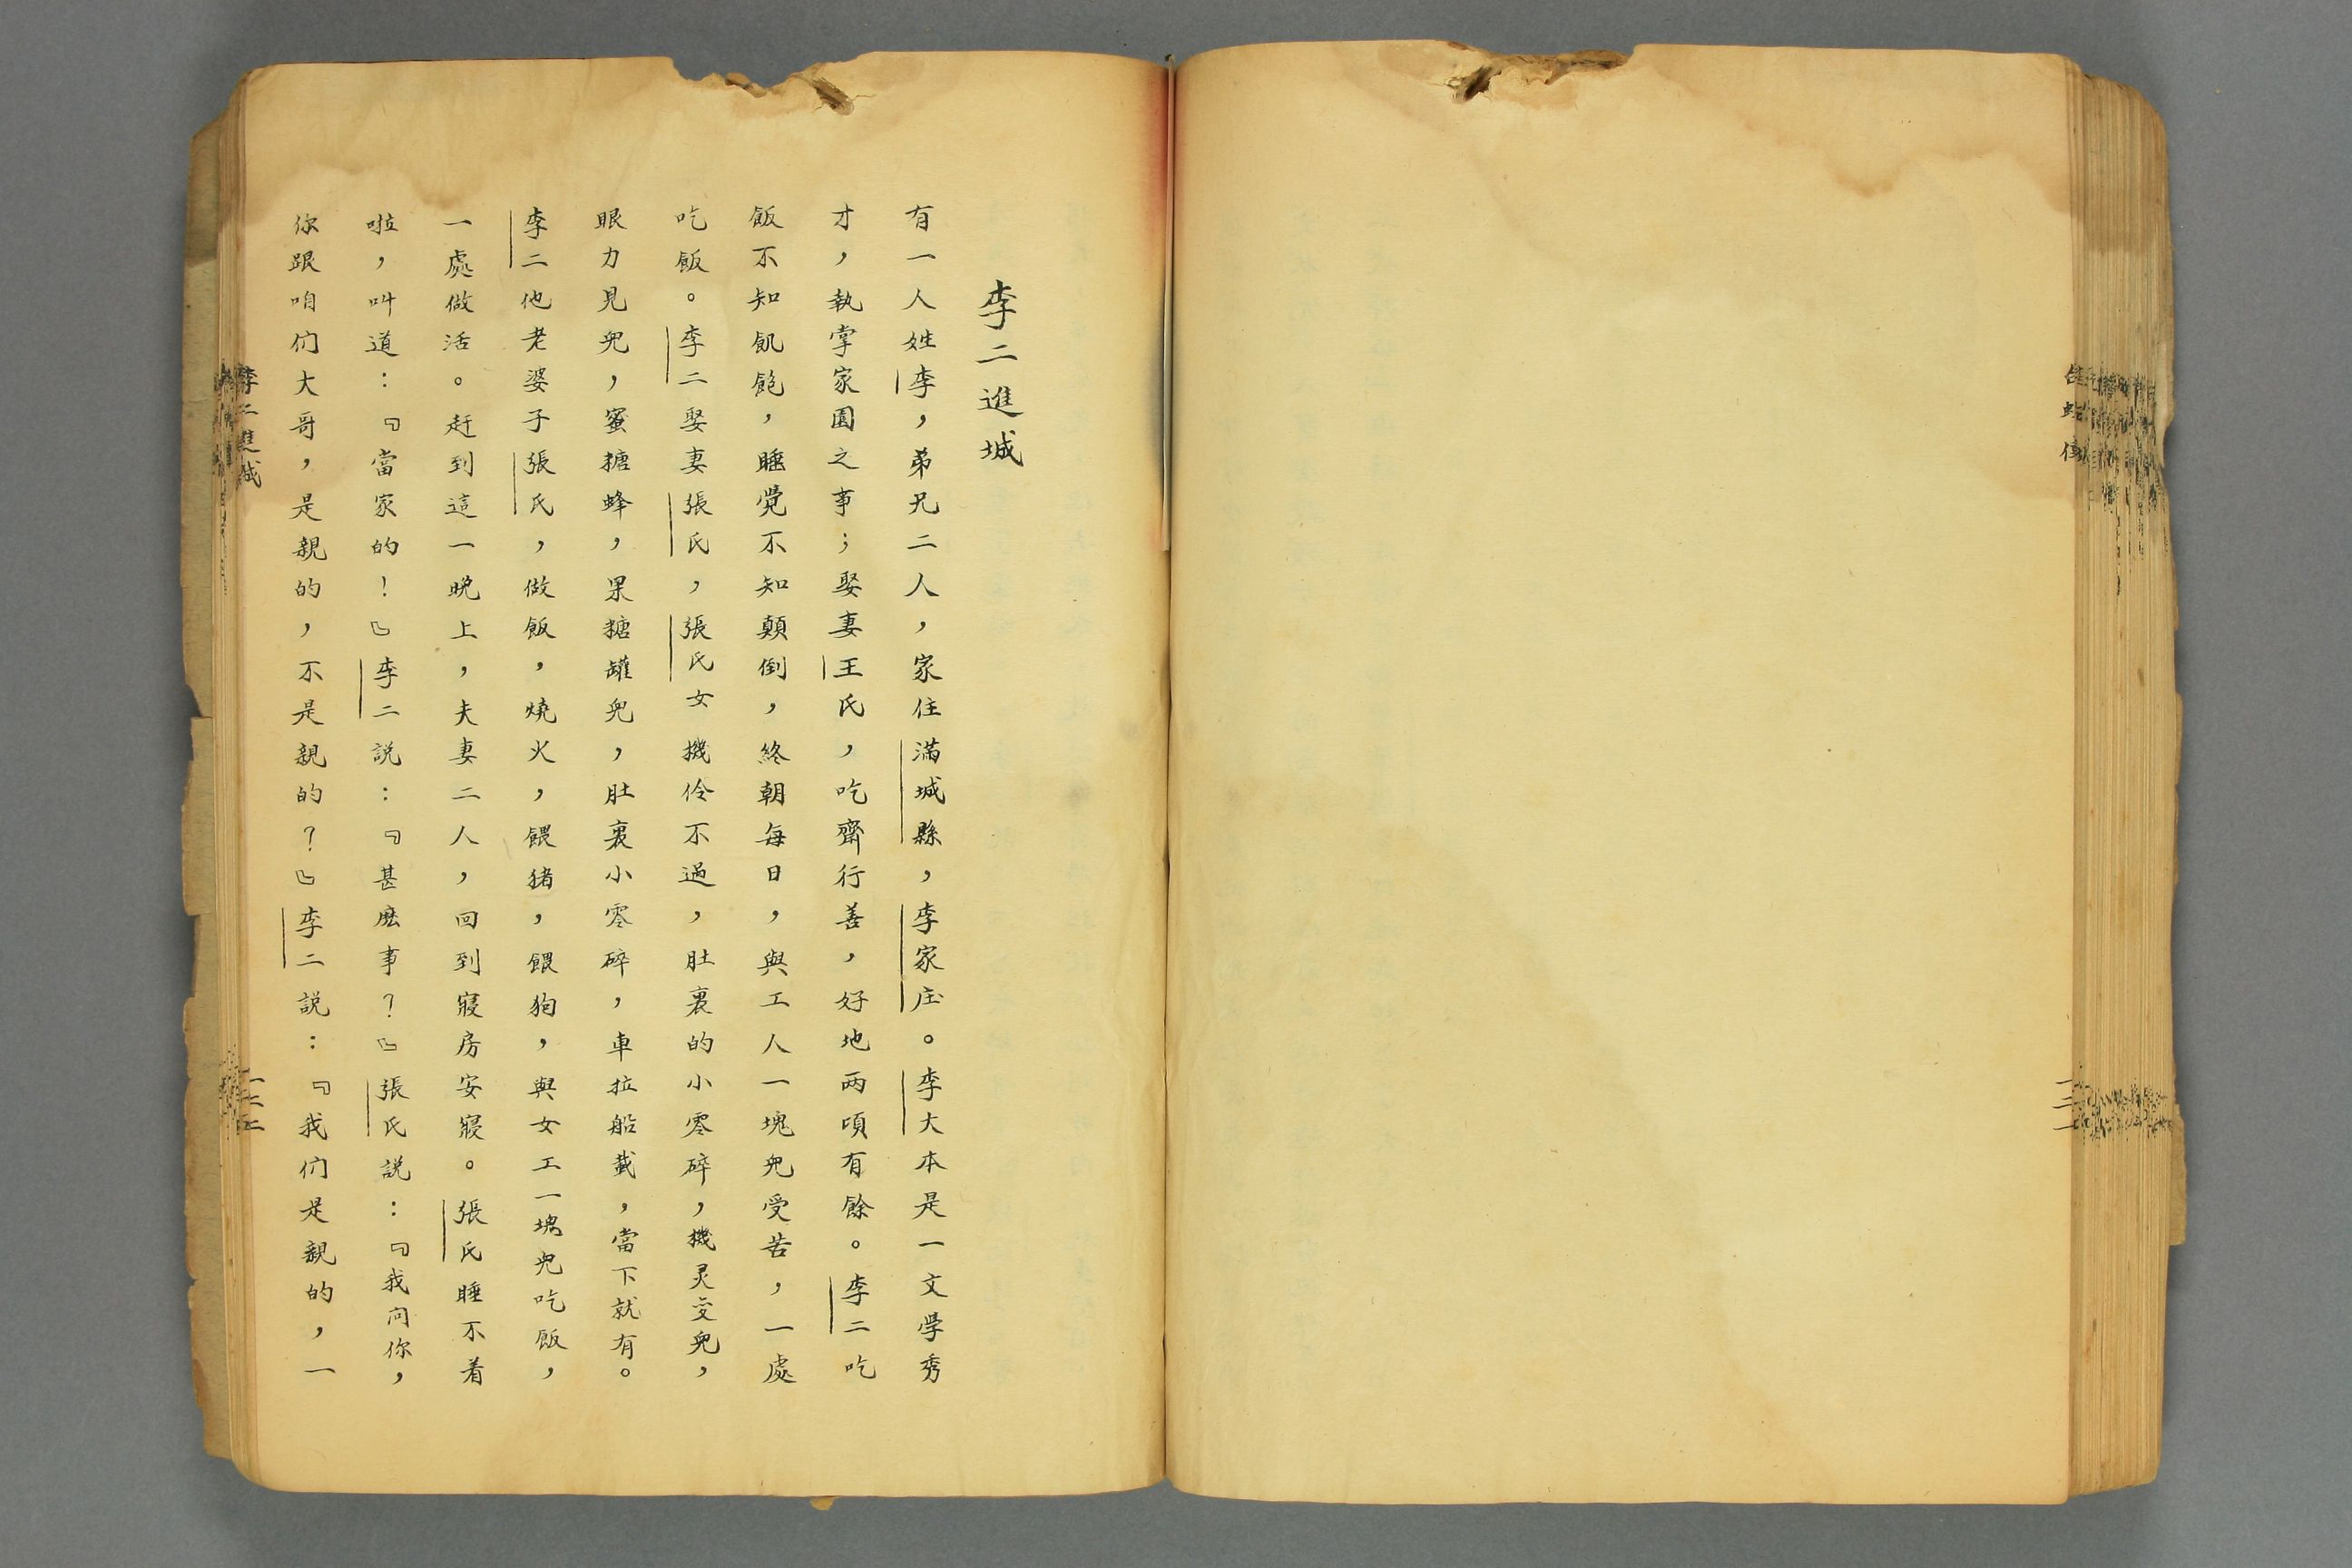 李二進城
有一人姓李，弟兄二人，家住滿城縣，李家庄。李大本是一文學秀
才，執掌家園之事；娶妻王氏，吃齋行善，好地两頃有餘。李二吃
飯不知飢飽，睡覺不知顛倒，終朝每日，與工人一塊兒受苦，一處
吃飯。李二娶妻張氏，張氏女機伶不過，肚裏的小零碎，機灵变兒，
眼力見兒，蜜糖蜂，果糖罐兒，肚裏小零碎，車拉船載，當下就有。
李二他老婆子張氏，做飯，燒火，餵猪，餵狗，與女工一塊兒吃飯，
一處做活。赶到這一晚上，夫妻二人，回到寢房安寢。張氏睡不着
啦，叫道：『當家的！』李二説：『甚麽事？』張氏説：『我问你，
你跟咱们大哥，是親的，不是親的？』李二説：『我们是親的，一
李二進城